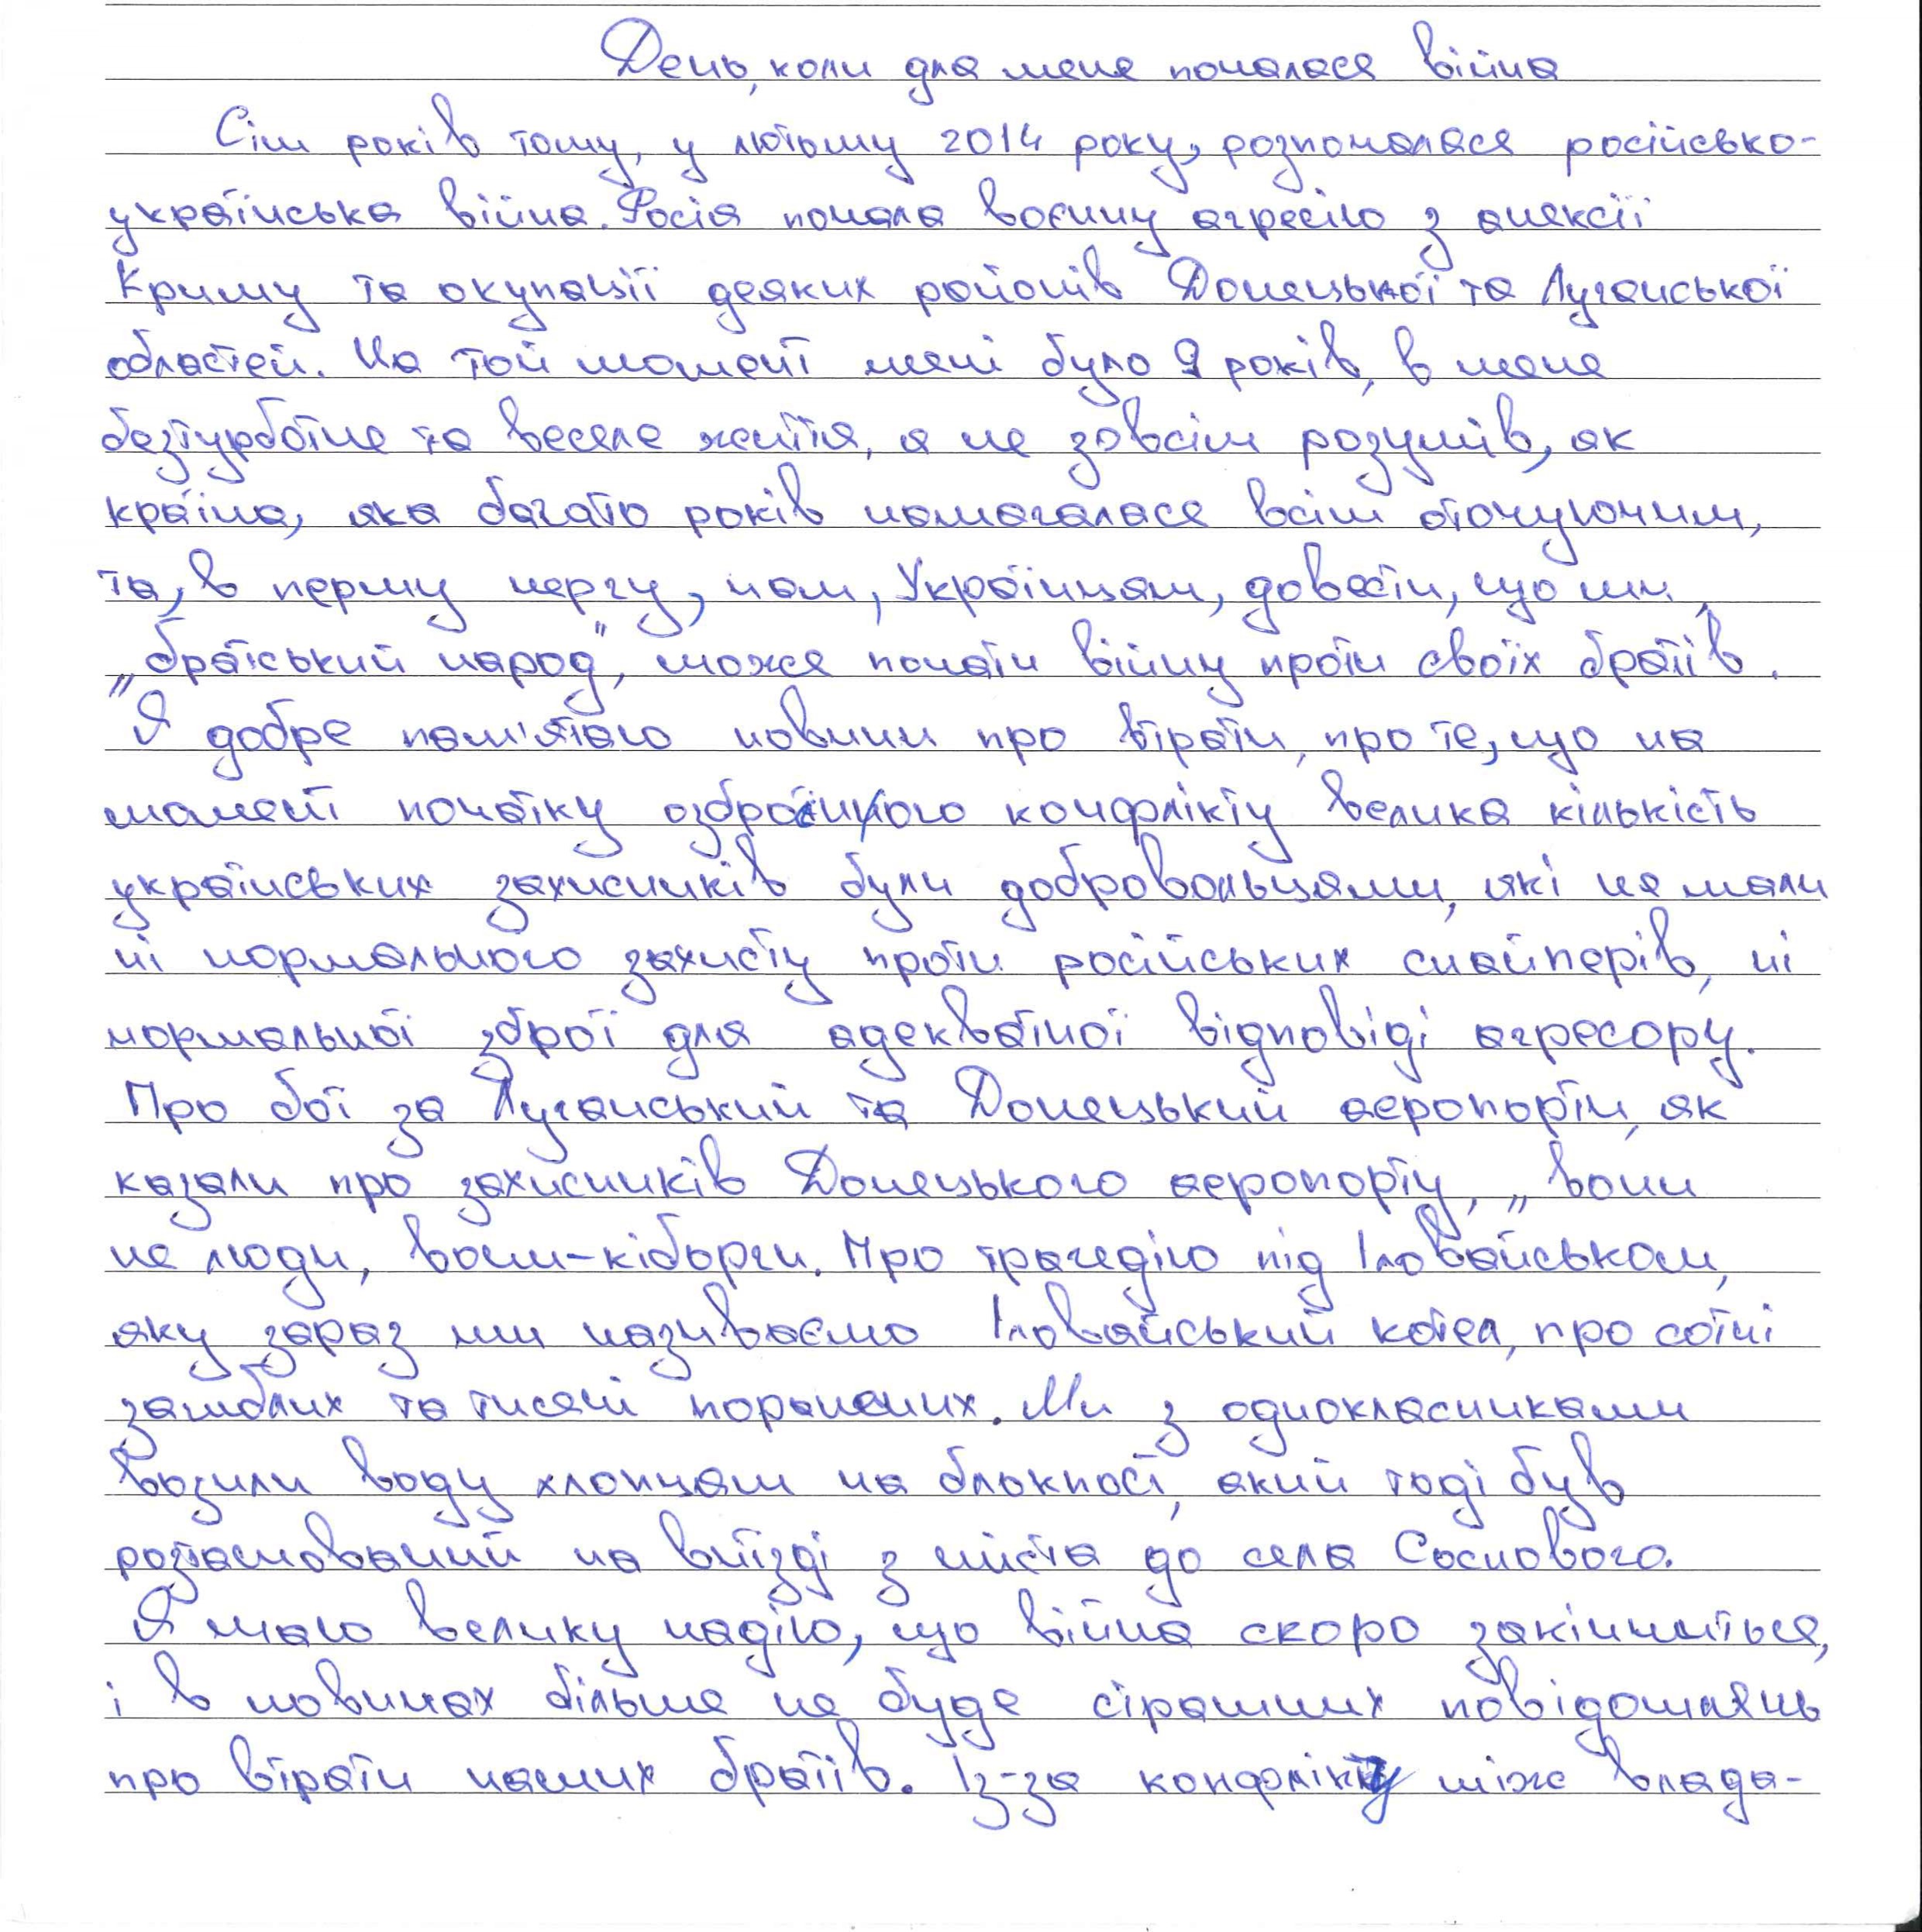 День, коли для мене почалася війна
Сім років тому, у лютому 2014 року, розпочалася російсько-
українська війна. Росія почала воєнну агресію з анексії
Криму та окупації деяких районів Донецької та Луганської
областей. На той момент мені було 9 років, в мене
безтурботне та веселе життя, я не зовсім розумів, як
країна, яка багато років намагалася всім оточуючим,
та, в першу чергу, нам, Українцям, довести, що ми
„братський народ", може почати війну проти своїх братів.
Я добре пам'ятаю новини про втрати, про те, що на
момент початку озброєного конфлікту велика кількість
українських захисників були добровольцями, які не мали
ні нормального захисту проти російських снайперів, ні
нормальної зброї для адекватної відповіді агресору.
Про бої за Луганський та Донецький аеропорти, як
казали про захисників Донецького аеропорту, „вони
не люди, вони-кіборги. Про трагедію під Іловайськом,
яку зараз ми називаємо Іловайський котел, про сотні
загиблих та тисячі поранених. Ми з однокласниками
возили воду хлопцям на блокпост, який тоді був
розташований на виїзді з міста до села Соснового.
Я маю велику надію, що війна скоро закінчиться,
і в новинах більше не буде страшних повідомлень
про втрати наших братів. Із-за конфлікту між влада-